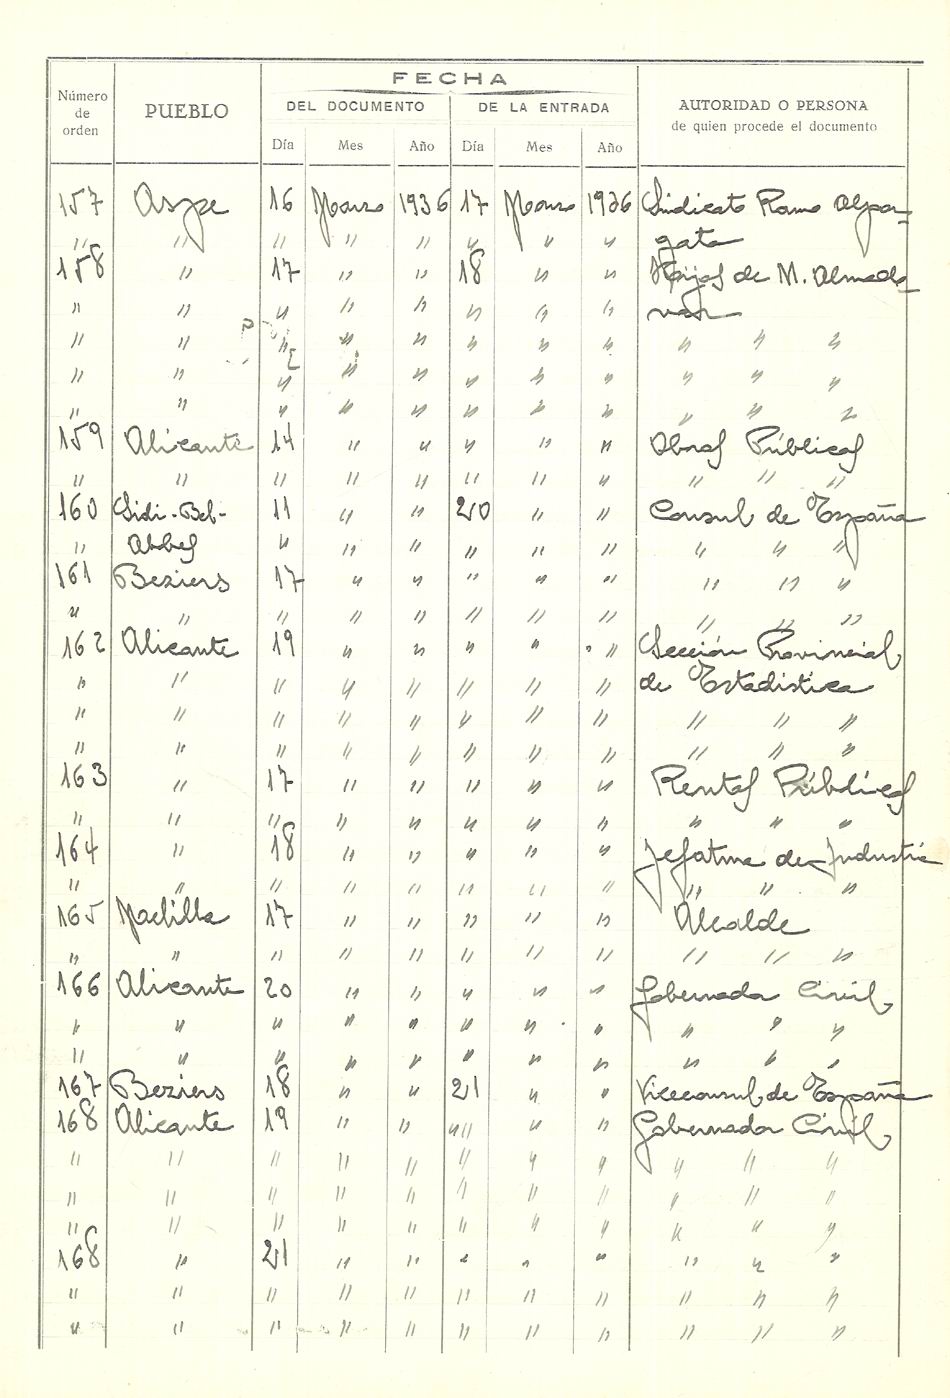 FECHA
Número de orden PUEBLO DEL DOCUMENTO DE LA ENTRADA AUTORIDAD O PERSONA de quien procede el documento
Día Mes Año Día Mes Año
157 Aspe 16 Marzo 1936 17 Marzo 1936 Sindicato Ramo Alpar-
" " " " " " " " gata
158 " 17 " " 18 " " Hijos de M. Almodo-
" " " " " " " " var
" " " " " " " " " " "
" " " " " " " " " " "
" " " " " " " " " " "
159 Alicante 14 " " " " " Obras Públicas
" " " " " " " " " " "
160 Sidi-Bel- 11 " " 20 " " Consul de España
" Abbes " " " " " " " " "
161 Beziers 17 " " " " " " " "
" " " " " " " " " " "
162 Alicante 19 " " " " " Sección Provincial
" " " " " " " " de Estadistica
" " " " " " " " " " "
" " " " " " " " " " "
163 " 17 " " " " " Rentas Públicas
" " " " " " " " " " "
164 " 18 " " " " " Jefatura de Industria
" " " " " " " " " " "
165 17 " " " " " Alcalde
" " " " " " " " " " "
166 Alicante 20 " " " " " Gobernador Civil
" " " " " " " " " " "
" " " " " " " " " " "
167 Beziers 18 " " 21 " " Viceconsul de España
168 Alicante 19 " " " " " Gobernador Civil
" " " " " " " " " " "
" " " " " " " " " " "
" " " " " " " " " " "
168 " 21 " " " " " " " "
" " " " " " " " " " "
" " " " " " " " " " "